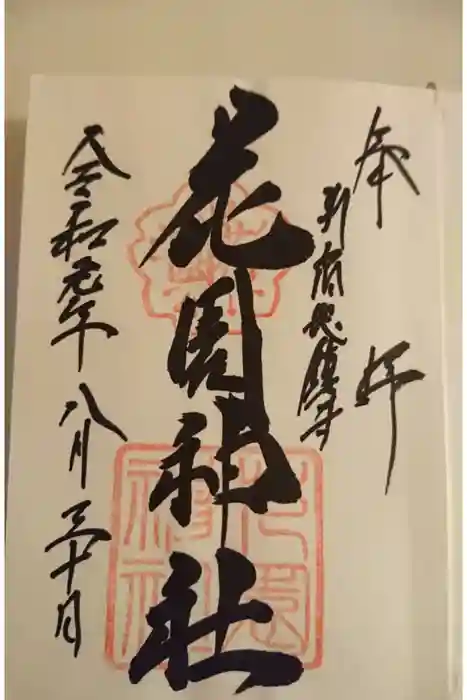 奉拝
新宿総鎮守
花園神社
花園神社
令和元年八月三十日